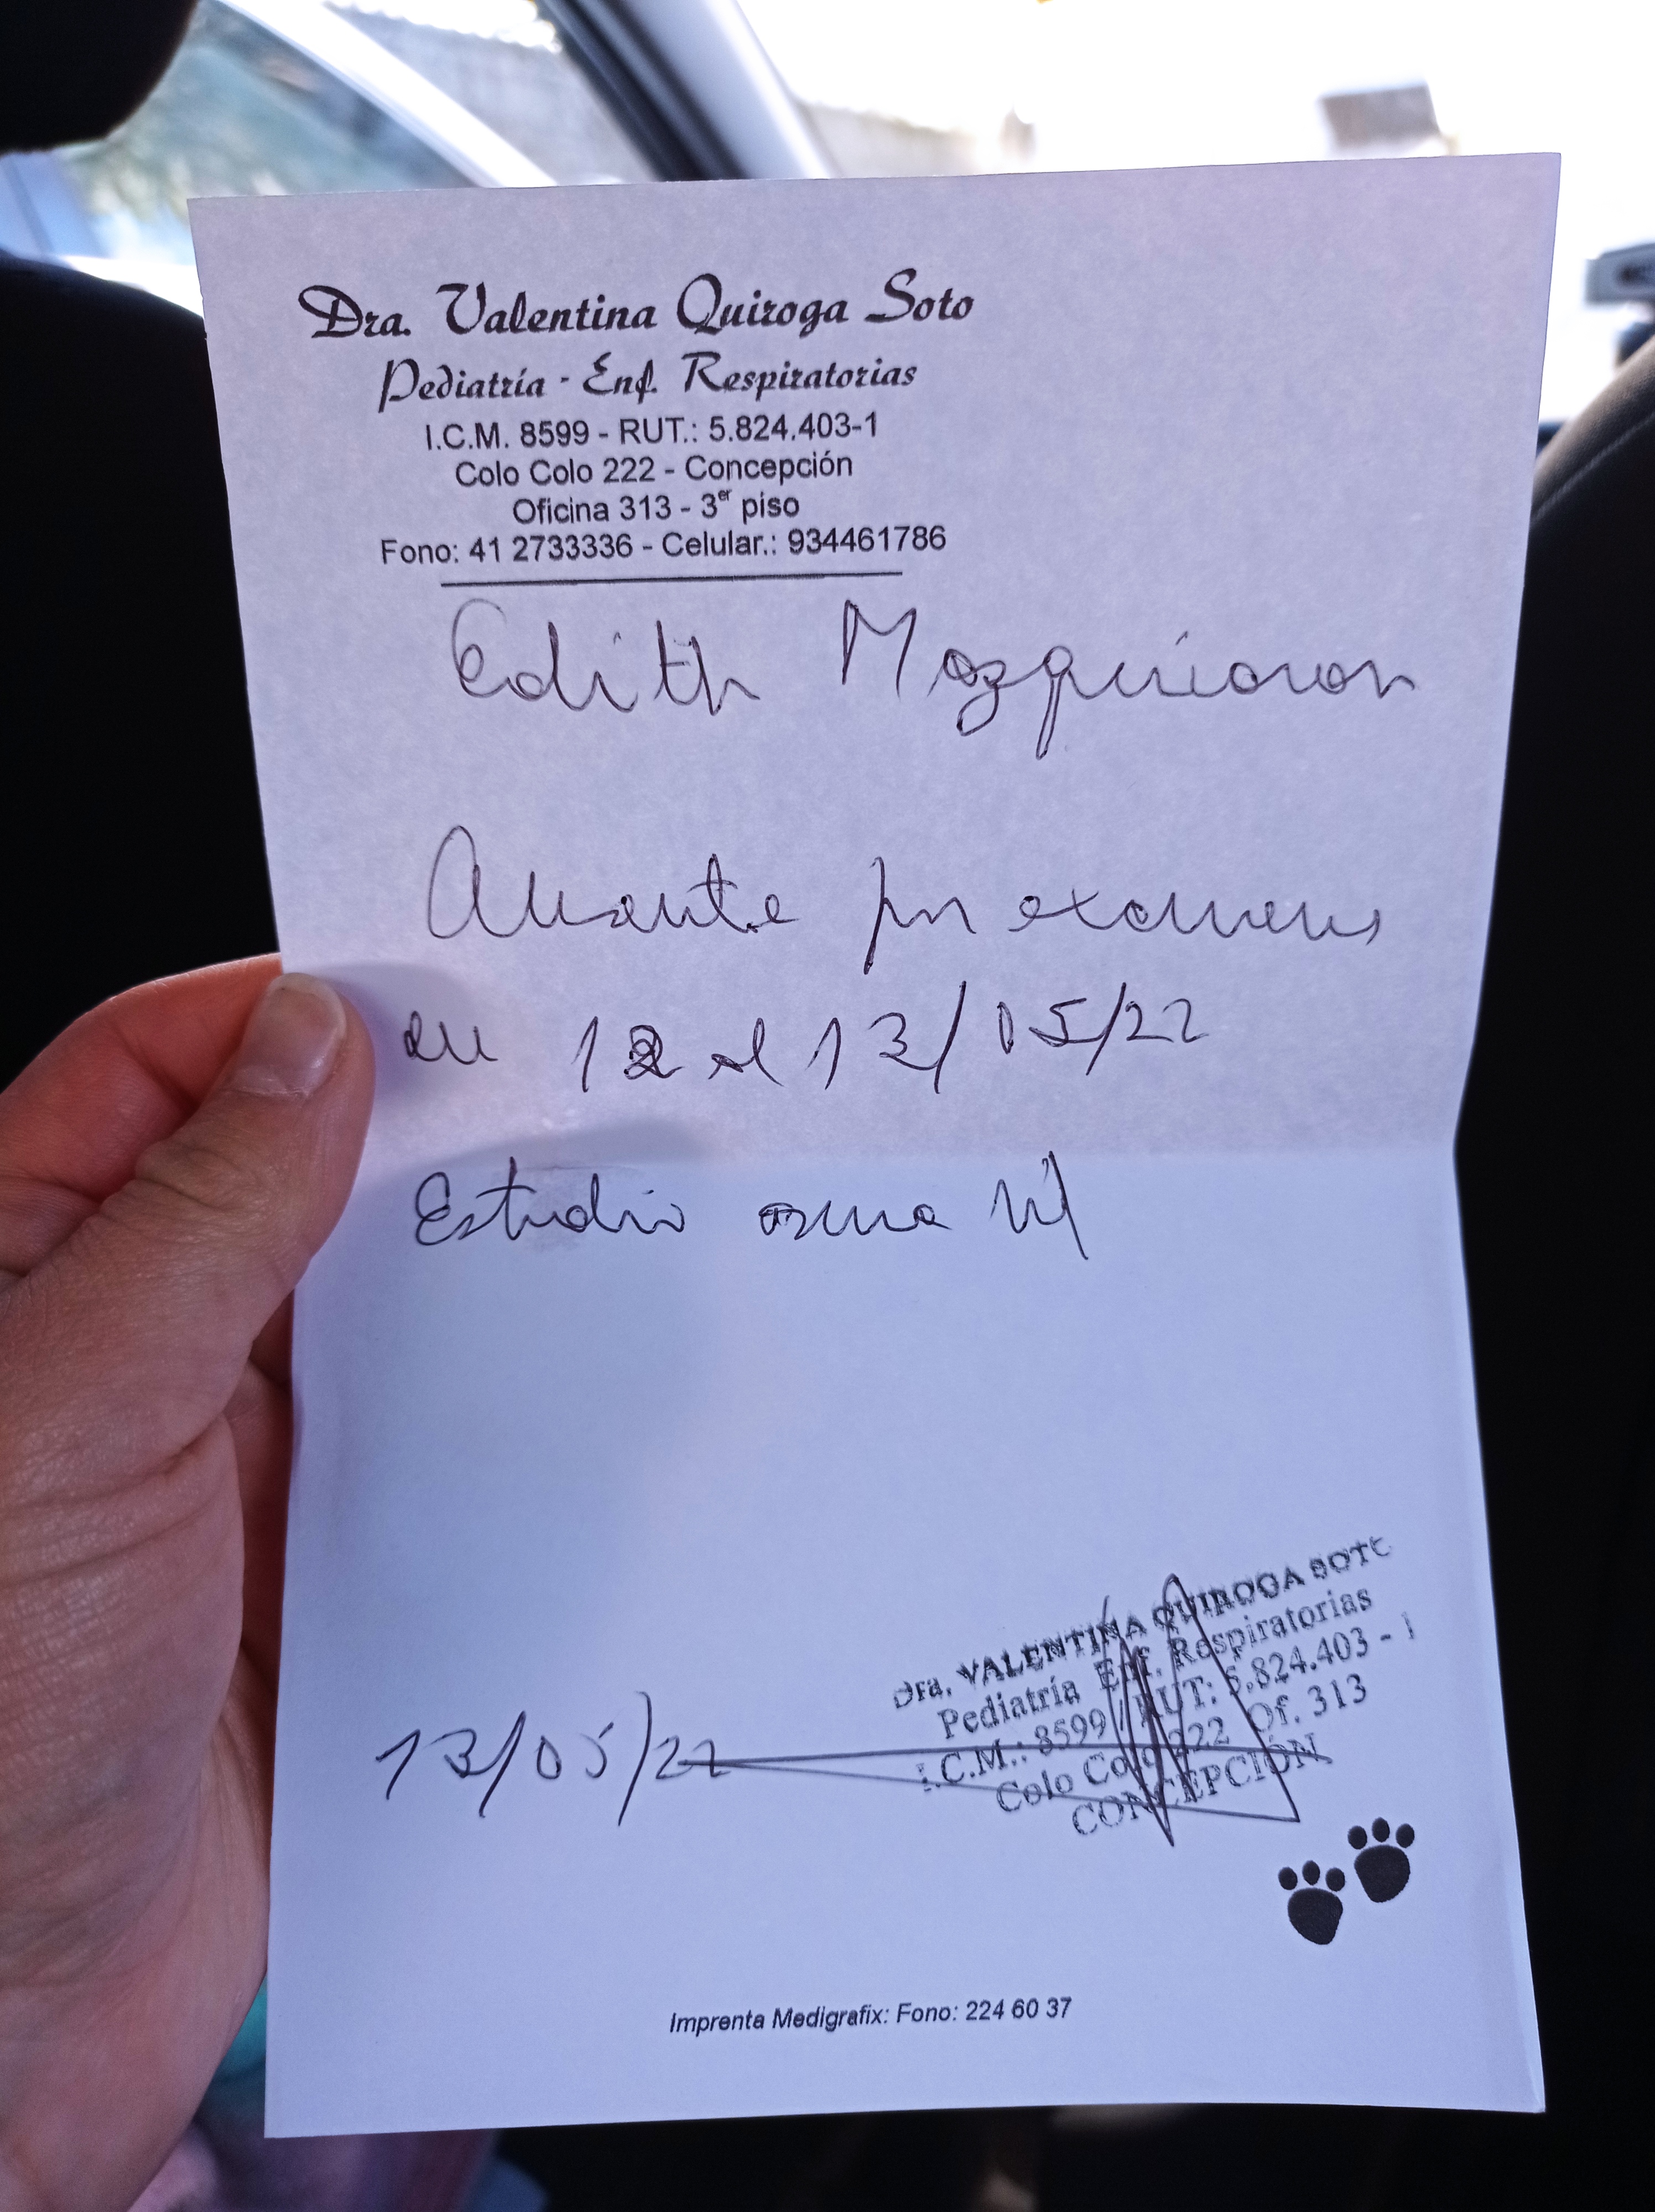 Dra. Valentina Quiroga Soto
Pediatría - Enf. Respiratorias
I.C.M. 8599 - RUT.: 5.824.403-1
Colo Colo 222 - Concepción
Oficina 313 - 3er piso
Fono: 41 2733336 - Celular.: 934461786
Edith
Ausente por exámenes
12 al 13/05/22
Estudio asma
Dra. VALENTINA QUIROGA SOTO
Pediatría Enf. Respiratorias
I.C.M.: 8599 RUT: 5.824.403 - 1
Colo Colo 222 Of. 313
CONCEPCIÓN
13/05/22
Imprenta Medigrafix: Fono: 224 60 37